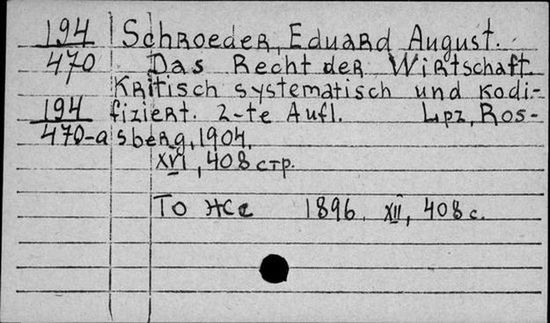 194 Schroeder, Eduard August.
470 Das Recht der Wirtschaft.
Kritisch systematisch und kodi-
194 fiziert. 2-te Aufl. Lpz, Ros-
470-a sberg, 1904.
XVI, 408 стр.
То же 1896. XII, 408 с.